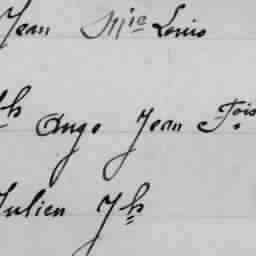 Jean Mie Louis
Jh Ange Jean Fois
Julien Jh